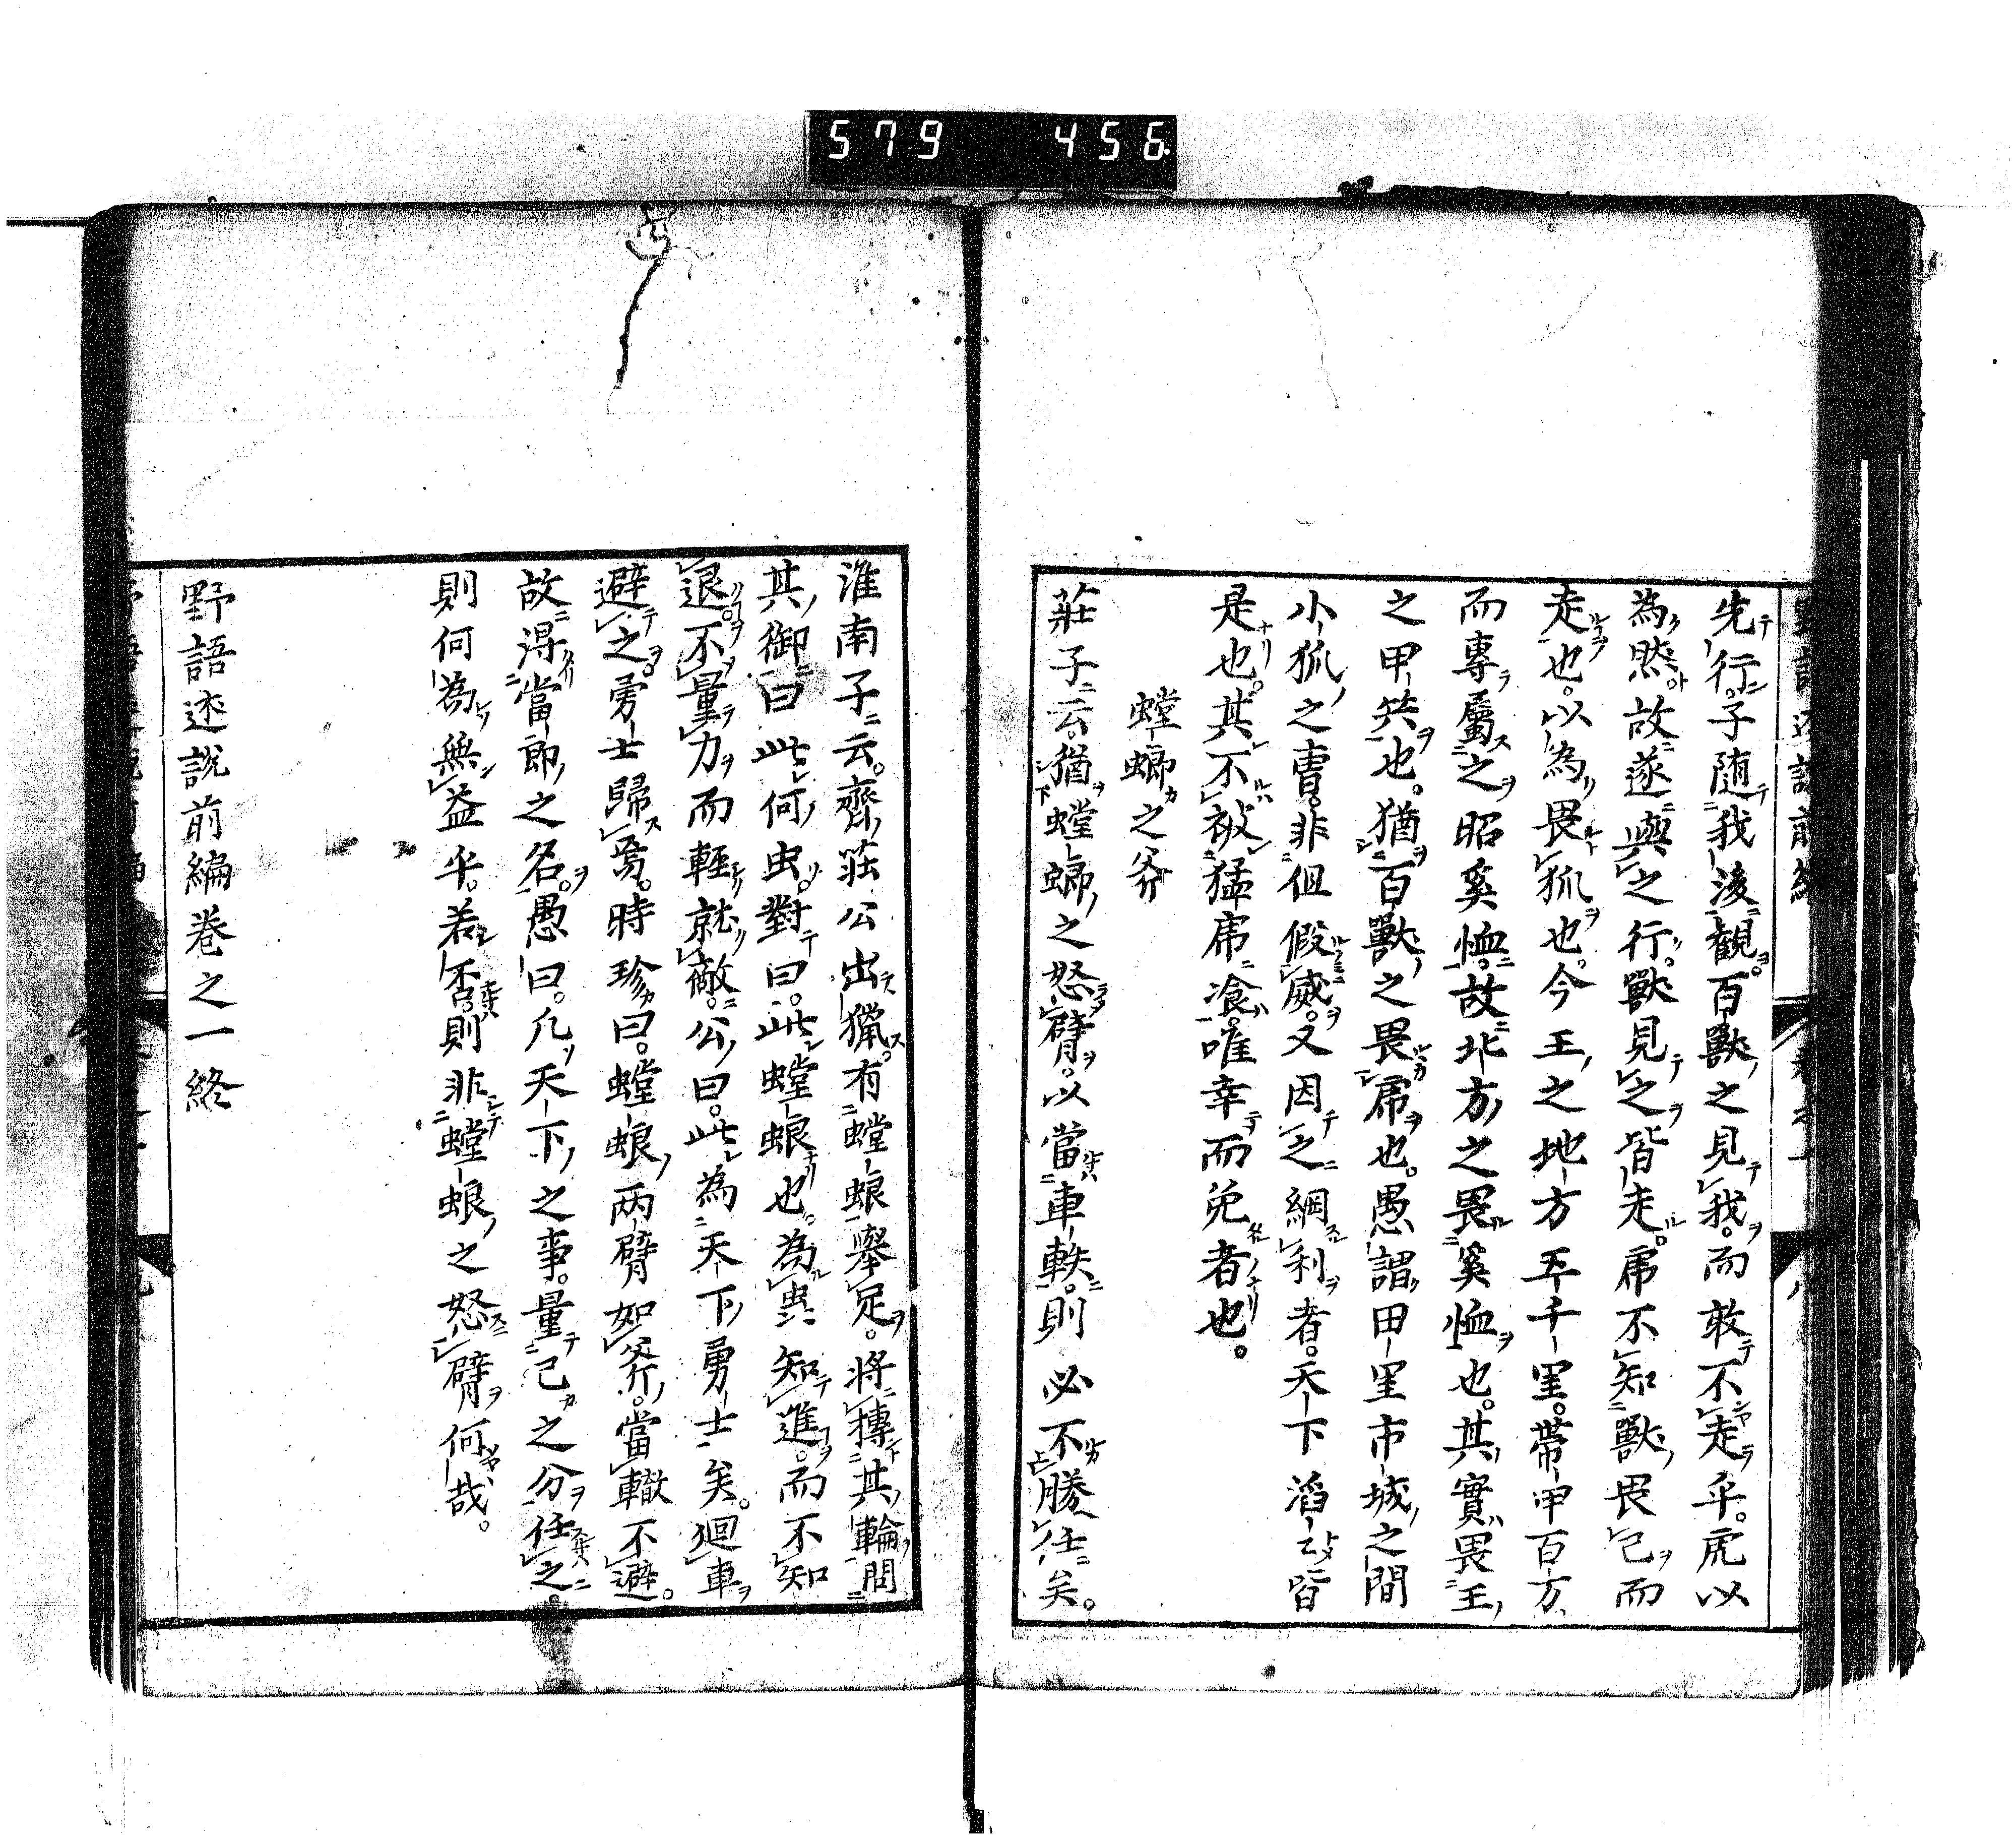 579 456
先行子随我後觀百獸之見我而敢不走乎虎以
為然故遂與之行獸見之皆走虎不知獸畏己而
走也以為畏狐也今王之地方五千里帶甲百万
而專屬之昭奚恤故北方之畏奚恤也其實畏王
之甲兵也猶百獸之畏虎也愚謂田里市城之間
小狐之曹非但假威又因之網利者天下滔々皆
是也其不被猛虎飡唯幸而免者也
螳螂之斧
莊子云猶螳螂之怒臂以當車軼則必不勝任矣
淮南子云齊莊公出獵有螳蜋舉足將摶其輪問
其御曰此何虫對曰此螳蜋也為虫知進而不知
退不量力而輕就敵公曰此為天下勇士矣迴車
避之勇士歸焉時珍曰螳蜋兩臂如斧當轍不避
故得當郎之名愚曰凡天下之事量己之分任之
則何為無益乎若否則非螳蜋之怒臂何哉
野語述說前編卷之一終